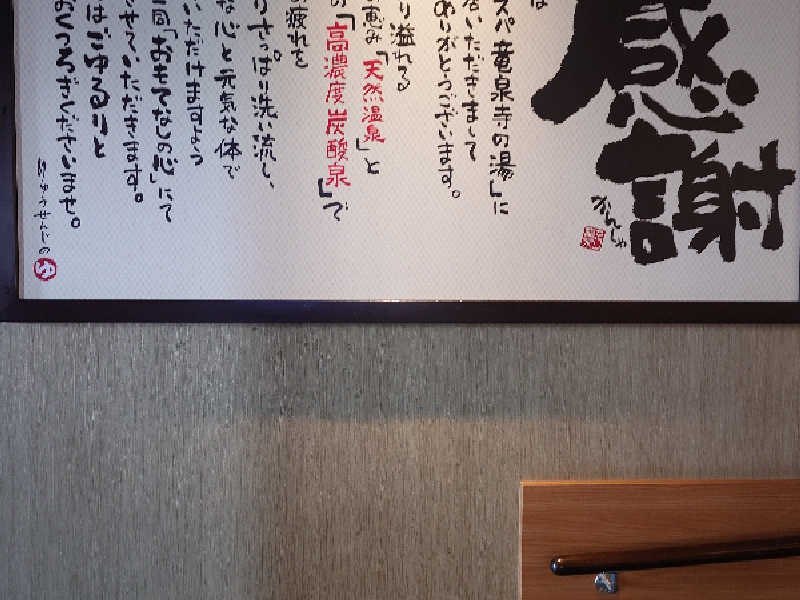 感謝
かんしゃ
は
スパ竜泉寺の湯」に
いただきまして
ありがとうございます。
り溢れる
恵み「天然温泉」と
の「高濃度炭酸泉」で
疲れを
りさっぱり洗い流し、
な心と元気な体で
いただけますよう
一同「おもてなしの心」にて
させていただきます。
はごゆるりと
おくつろぎくださいませ。
りゅうせんじの
ゆ